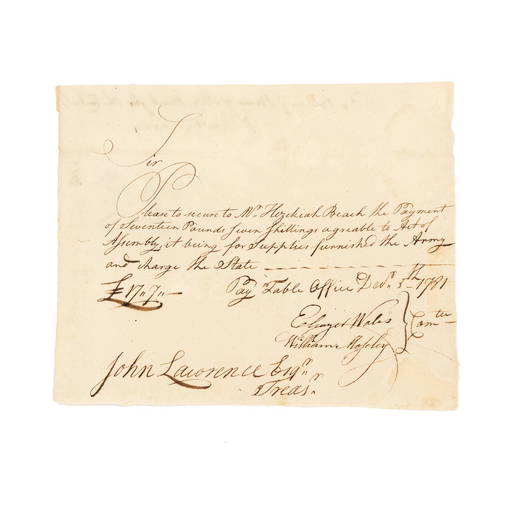 Sir
Please to secure to Mr. Hezekiah Beach the Payment
of Seventeen Pounds Seven Shillings agreable to Act of
Assembly, it being for Supplies furnished the Army
and charge the State
£17"7"— Pay Table Office Decr. 5th 1781
Eleazer Wales
William Mosely
} Comtee
John Lawrence Esqr.
Treasr.